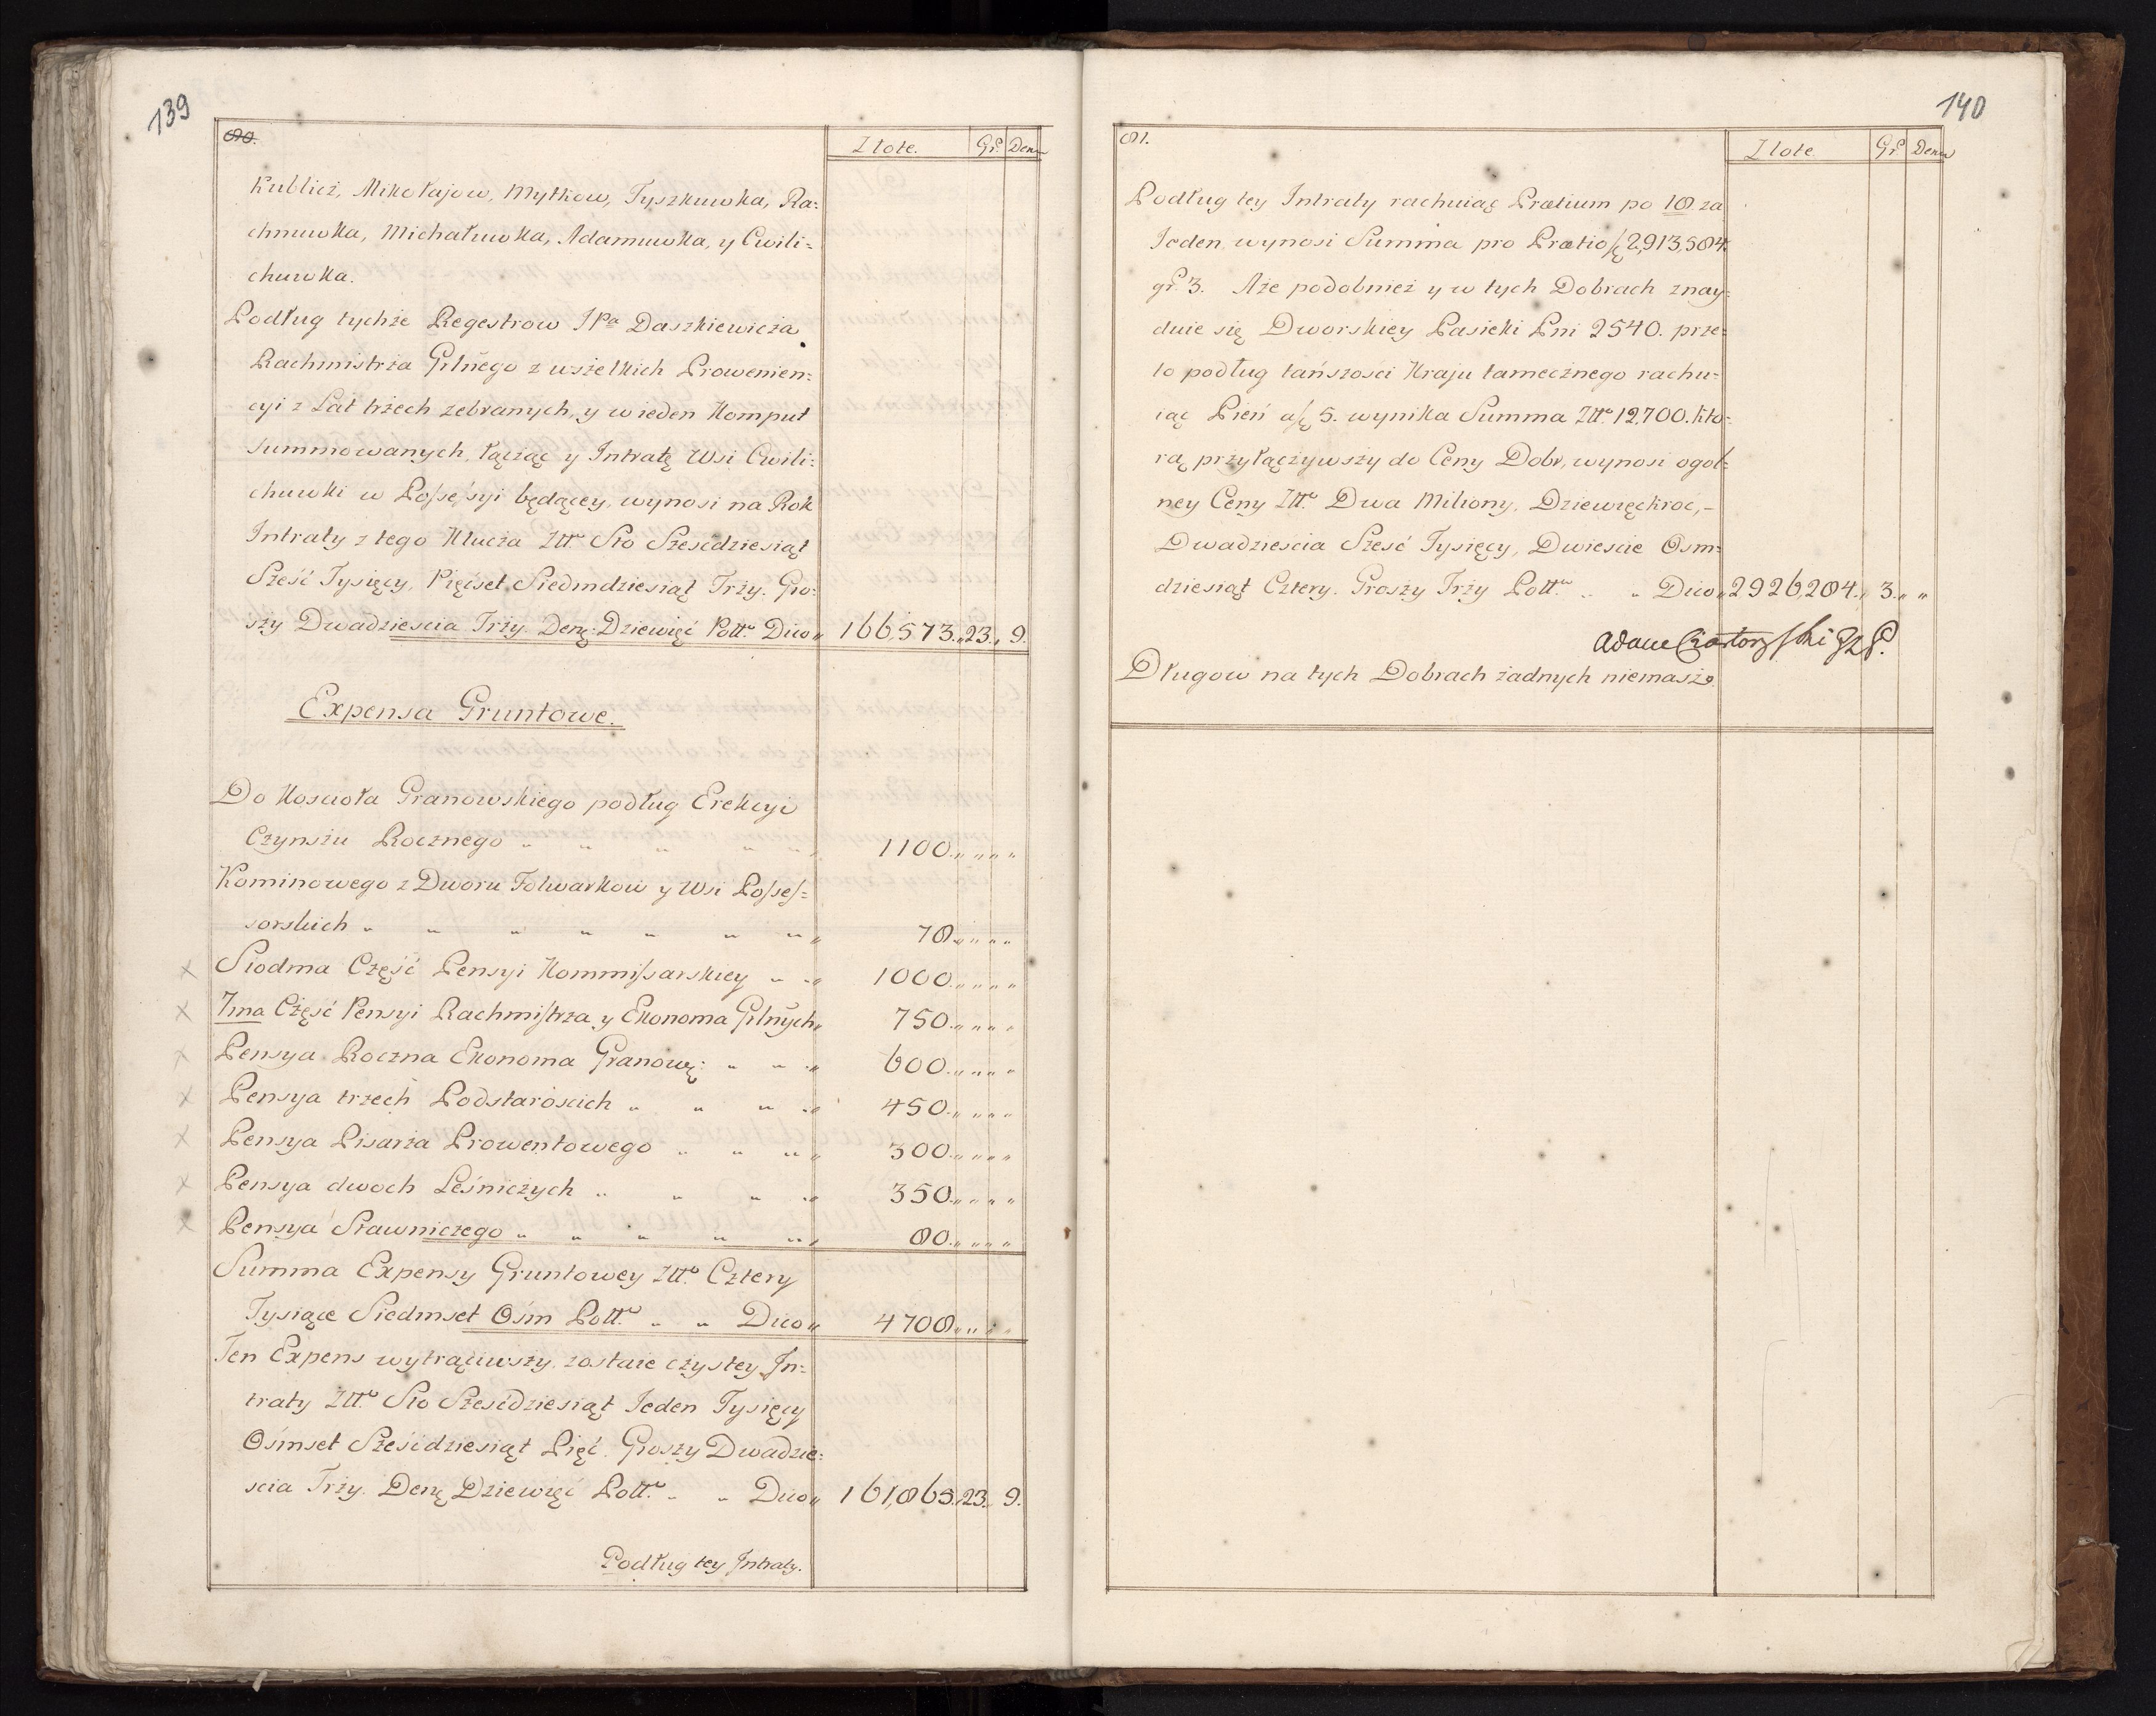 139
80.
Złote. Gr. Den.
Kublicz, Mikołajow, Mytkow, Tyszkuwka, Ra=
chnuwka, Michałuwka, Adamuwka, y Cwili=
chuwka.
Podług tychże Regestrow JPa Daszkiewicza
Rachmistrza Grlnego z wszelkich Prowenien=
cyi z Lat trzech zebranych, y w ieden Komput
summowanych, łącząc y Intratę Wsi Cwili=
chuwki w Possessyi będącey, wynosi na Rok
Intraty z tego Klucza Złł. Sto Szesćdziesiąt
Sześć Tysięcy, Pięćset Siedmdziesiąt Trzy. Gro=
szy Dwadziescia Trzy. Denę: Dziewięć Poll. Dico „ 166,573.„ 23.„ 9.
Expensa Gruntowe.
Do Koscioła Granowskiego podług Erekcyi
Czynszu Rocznego „ „ „ „ „ 1100.„ „ „ „
Kominowego z Dworu Folwarkow y Wsi Posses=
sorskich „ „ „ „ „ „ „ 78.„ „ „ „
Siodma Część Pensyi Kommissarskiey „ „ 1000.„ „ „ „
7ma Część Pensyi Rachmistrza y Ekonoma Grlnych „ 750.„ „ „ „
Pensya Roczna Ekonoma Granow: „ „ „ 600.„ „ „ „
Pensya trzech Podstaroscich „ „ „ „ 450.„ „ „ „
Pensya Pisarza Prowentowego „ „ „ 300.„ „ „ „
Pensya dwoch Leśniczych „ „ „ „ 350.„ „ „ „
Pensya Stawniczego „ „ „ „ „ 80.„ „ „ „
Summa Expensy Gruntowey Złł. Cztery
Tysiące Siedmset Ośm Poll. „ „ Dico „ 4708.„ „ „ „
Ten Expens wytrąciwszy, zostaie czystey In=
traty Złł. Sto Szesćdziesiąt Jeden Tysięcy
Ośmset Sześćdziesiąt Pięć. Groszy Dwadzie=
scia Trzy. Denę Dziewięć Poll. „ „ Dico „ 161,865.„ 23.„ 9.
Podług tey Intraty.
140
81.
Złote Gr. Den.
Podług tey Intraty rachuiąc Prætium po 18 za
Jeden, wynosi Summa pro Prætio fę 2,913,584.
gr. 3. Aże podobnież y w tych Dobrach znay=
duie się Dworskiey Pasieki Pni 2540. prze=
to podług tańszosci Kraju tamecznego rachu=
iąc Pień a fę 5. wynika Summa Złł. 12,700. kto=
rą przyłączywszy do Ceny Dobr, wynosi ogol=
ney Ceny Złł. Dwa Miliony, Dziewięćkroć, –
Dwadziescia Sześć Tysięcy, Dwiescie Osm=
dziesiąt Cztery. Groszy Trzy Poll. „ „ Dico „ 2926,284.„ 3.„ „
Adam Czartoryski GzP.
Długow na tych Dobrach żadnych niemasz.